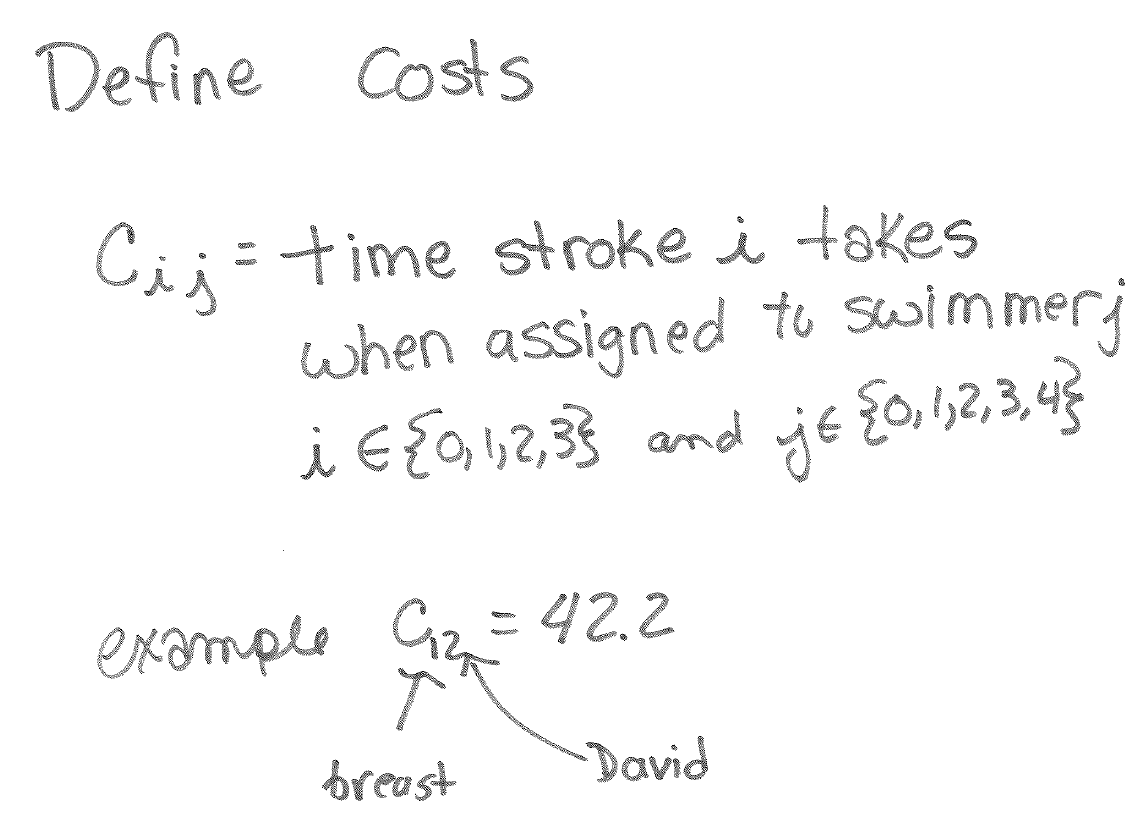 Define Costs
Cij = time stroke i takes
when assigned to swimmer j
i ∈ {0,1,2,3} and j ∈ {0,1,2,3,4}
example C12 = 42.2
breast David